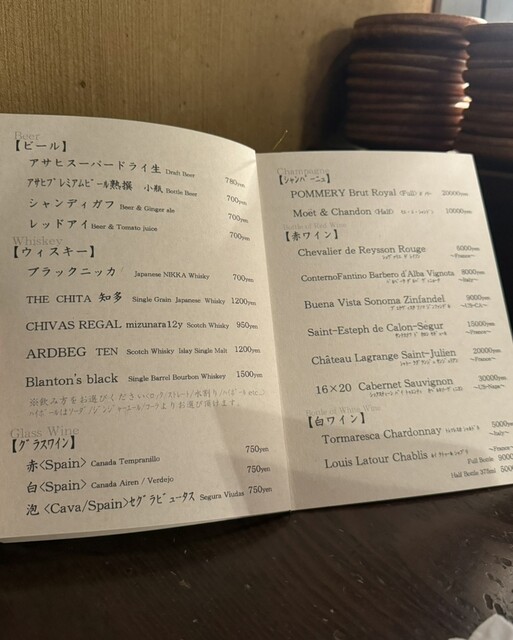 Beer
【ビール】
アサヒスーパードライ生 Draft Beer 780yen
アサヒプレミアムビール熟撰 小瓶 Bottle Beer 700yen
シャンディガフ Beer & Ginger ale 700yen
レッドアイ Beer & Tomato juice 700yen
Whiskey
【ウィスキー】
ブラックニッカ Japanese NIKKA Whisky 700yen
THE CHITA 知多 Single Grain Japanese Whisky 1200yen
CHIVAS REGAL mizunara12y Scotch Whisky 950yen
ARDBEG TEN Scotch Whisky Islay Single Malt 1200yen
Blanton's black Single Barrel Bourbon Whiskey 1500yen
※飲み方をお選びください(ロック/ストレート/水割り/ハイボール etc.)
ハイボールはソーダ/ジンジャーエール/コークよりお選び頂けます。
Glass Wine
【グラスワイン】
赤<Spain> Canada Tempranillo 750yen
白<Spain> Canada Airen / Verdejo 750yen
泡 <Cava/Spain>セグラビュータス Segura Viudas 750yen
Champagne
【シャンパーニュ】
POMMERY Brut Royal (Full) 20000yen
Moët & Chandon (Half) 10000yen
Bottle of Red Wine
【赤ワイン】
Chevalier de Reysson Rouge 6000yen
~France~
ConternoFantino Barbero d'Alba Vignota 8000yen
~Italy~
Buena Vista Sonoma Zinfandel 9000yen
Saint-Esteph de Calon-Segur 15000yen
~France~
Château Lagrange Saint-Julien 20000yen
~France~
16×20 Cabernet Sauvignon 30000yen
Bottle of White Wine
【白ワイン】
Tormaresca Chardonnay 5000yen
~Italy~
Louis Latour Chablis ~France~
Full Bottle 9000
Half Bottle 375ml 500